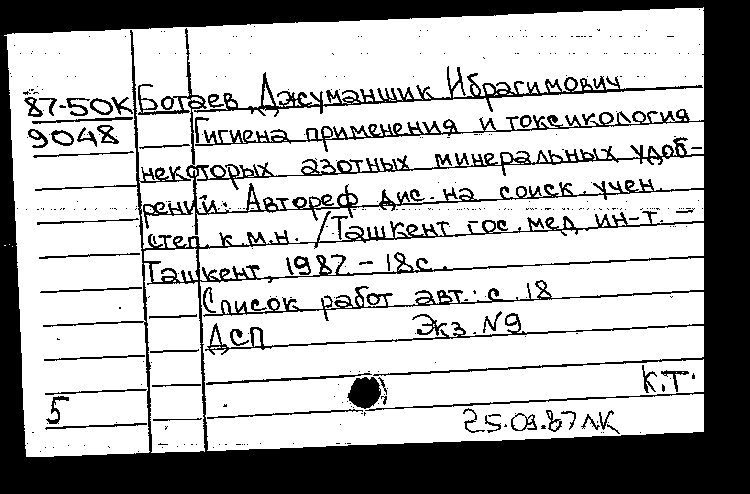 87-50К Ботаев, Джуманшик Ибрагимович
9048 Гигиена применения и токсикология
некоторых азотных минеральных удоб-
рений: Автореф дис. на соиск. учен.
степ. к.м.н. / Ташкент гос. мед. ин-т. -
Ташкент, 1987 - 18с.
Список работ авт.: с. 18
ДСП Экз. N9
К.Т.
5
25.09.87 ЛК